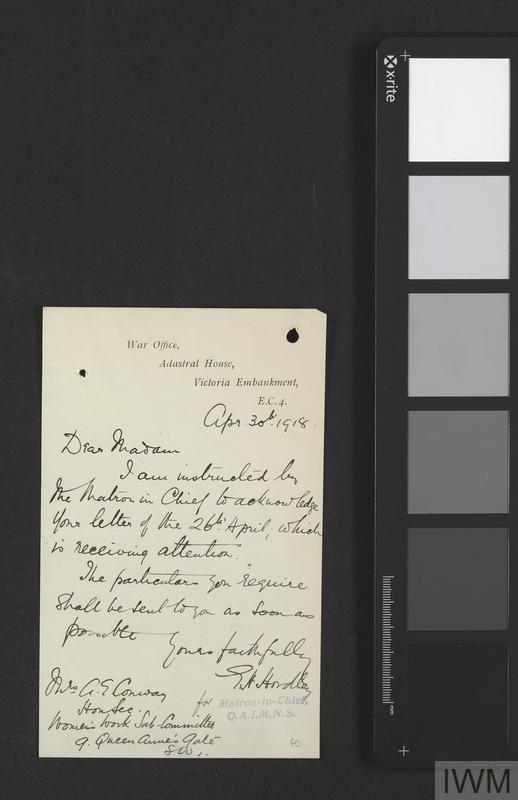 War Office,
Adastral House,
Victoria Embankment,
E.C. 4.
Apr. 30th 1918.
Dear Madam
I am instructed by
the Matron in Chief to acknowledge
your letter of the 26th April, which
is receiving attention.
The particulars you require
shall be sent to you as soon as
possible
Yours faithfully
for Matron-in-Chief,
Q.A.I.M.N.S.
Mrs A. E Conway
Hon Sec:
Women's Work Sub-Committee
9. Queen Anne's Gate
S.W.1.
60
x-rite
mm
IWM